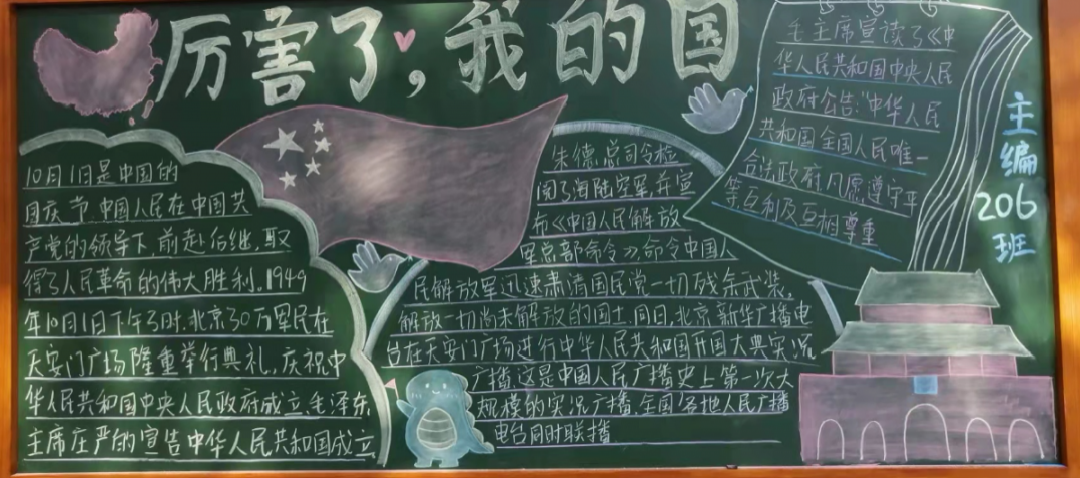 厉害了，我的国
10月1日是中国的
国庆节,中国人民在中国共
产党的领导下,前赴后继,取
得了人民革命的伟大胜利。1949
年10月1日下午3时,北京30万军民在
天安门广场隆重举行典礼,庆祝中
华人民共和国中央人民政府成立,毛泽东
主席庄严的宣告中华人民共和国成立
朱德总司令检
阅了海陆空军,并宣
布《中国人民解放
军总部命令》,命令中国人
民解放军迅速肃清国民党一切残余武装,
解放一切尚未解放的国土,同日,北京新华广播电
台在天安门广场进行中华人民共和国开国大典实况
广播,这是中国人民广播史上第一次大
规模的实况广播,全国各地人民广播
电台同时联播.
毛主席宣读了《中
华人民共和国中央人民
政府公告:"中华人民
共和国全国人民唯一
合法政府,凡愿遵守平
等互利及互相尊重
主编
206
班